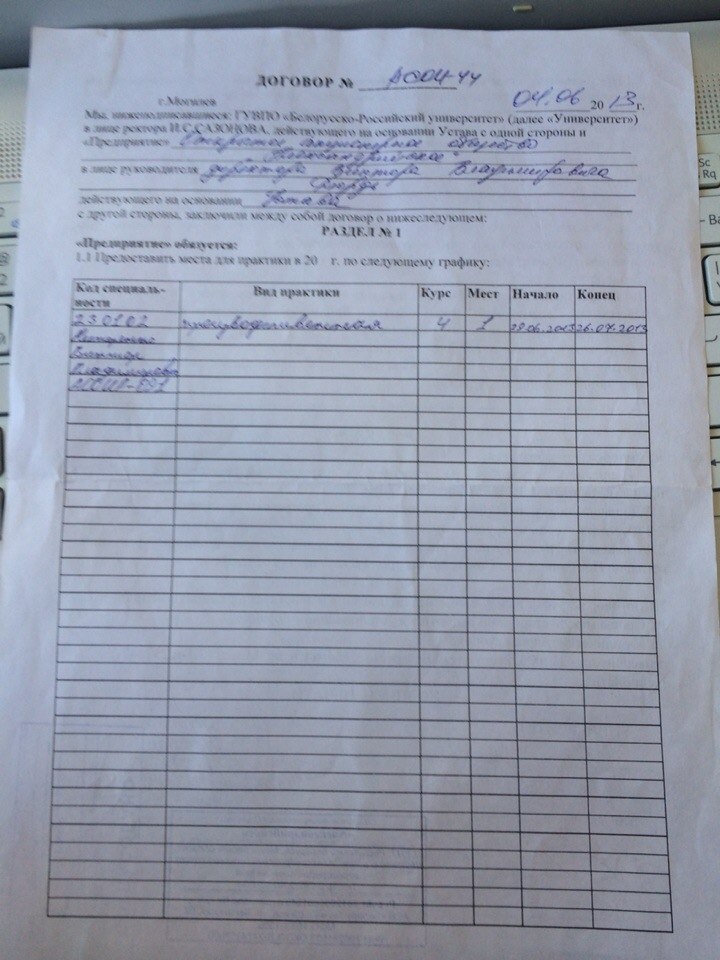 ДОГОВОР № АСОИ-44
г.Могилев 04.06 2013г.
Мы, нижеподписавшиеся: ГУВПО «Белорусско-Российский университет» (далее «Университет»)
в лице ректора И.С.САЗОНОВА, действующего на основании Устава с одной стороны и
«Предприятие» Открытое акционерное общество
в лице руководителя директора Виктора Владимировича
действующего на основании Устава
с другой стороны, заключили между собой договор о нижеследующем:
РАЗДЕЛ № 1
«Предприятие» обязуется:
1.1 Предоставить места для практики в 20 г. по следующему графику:
Код специаль-ности Вид практики Курс Мест Начало Конец
230102 производственная 4 1 29.06.2013 26.07.2013
Владимировна